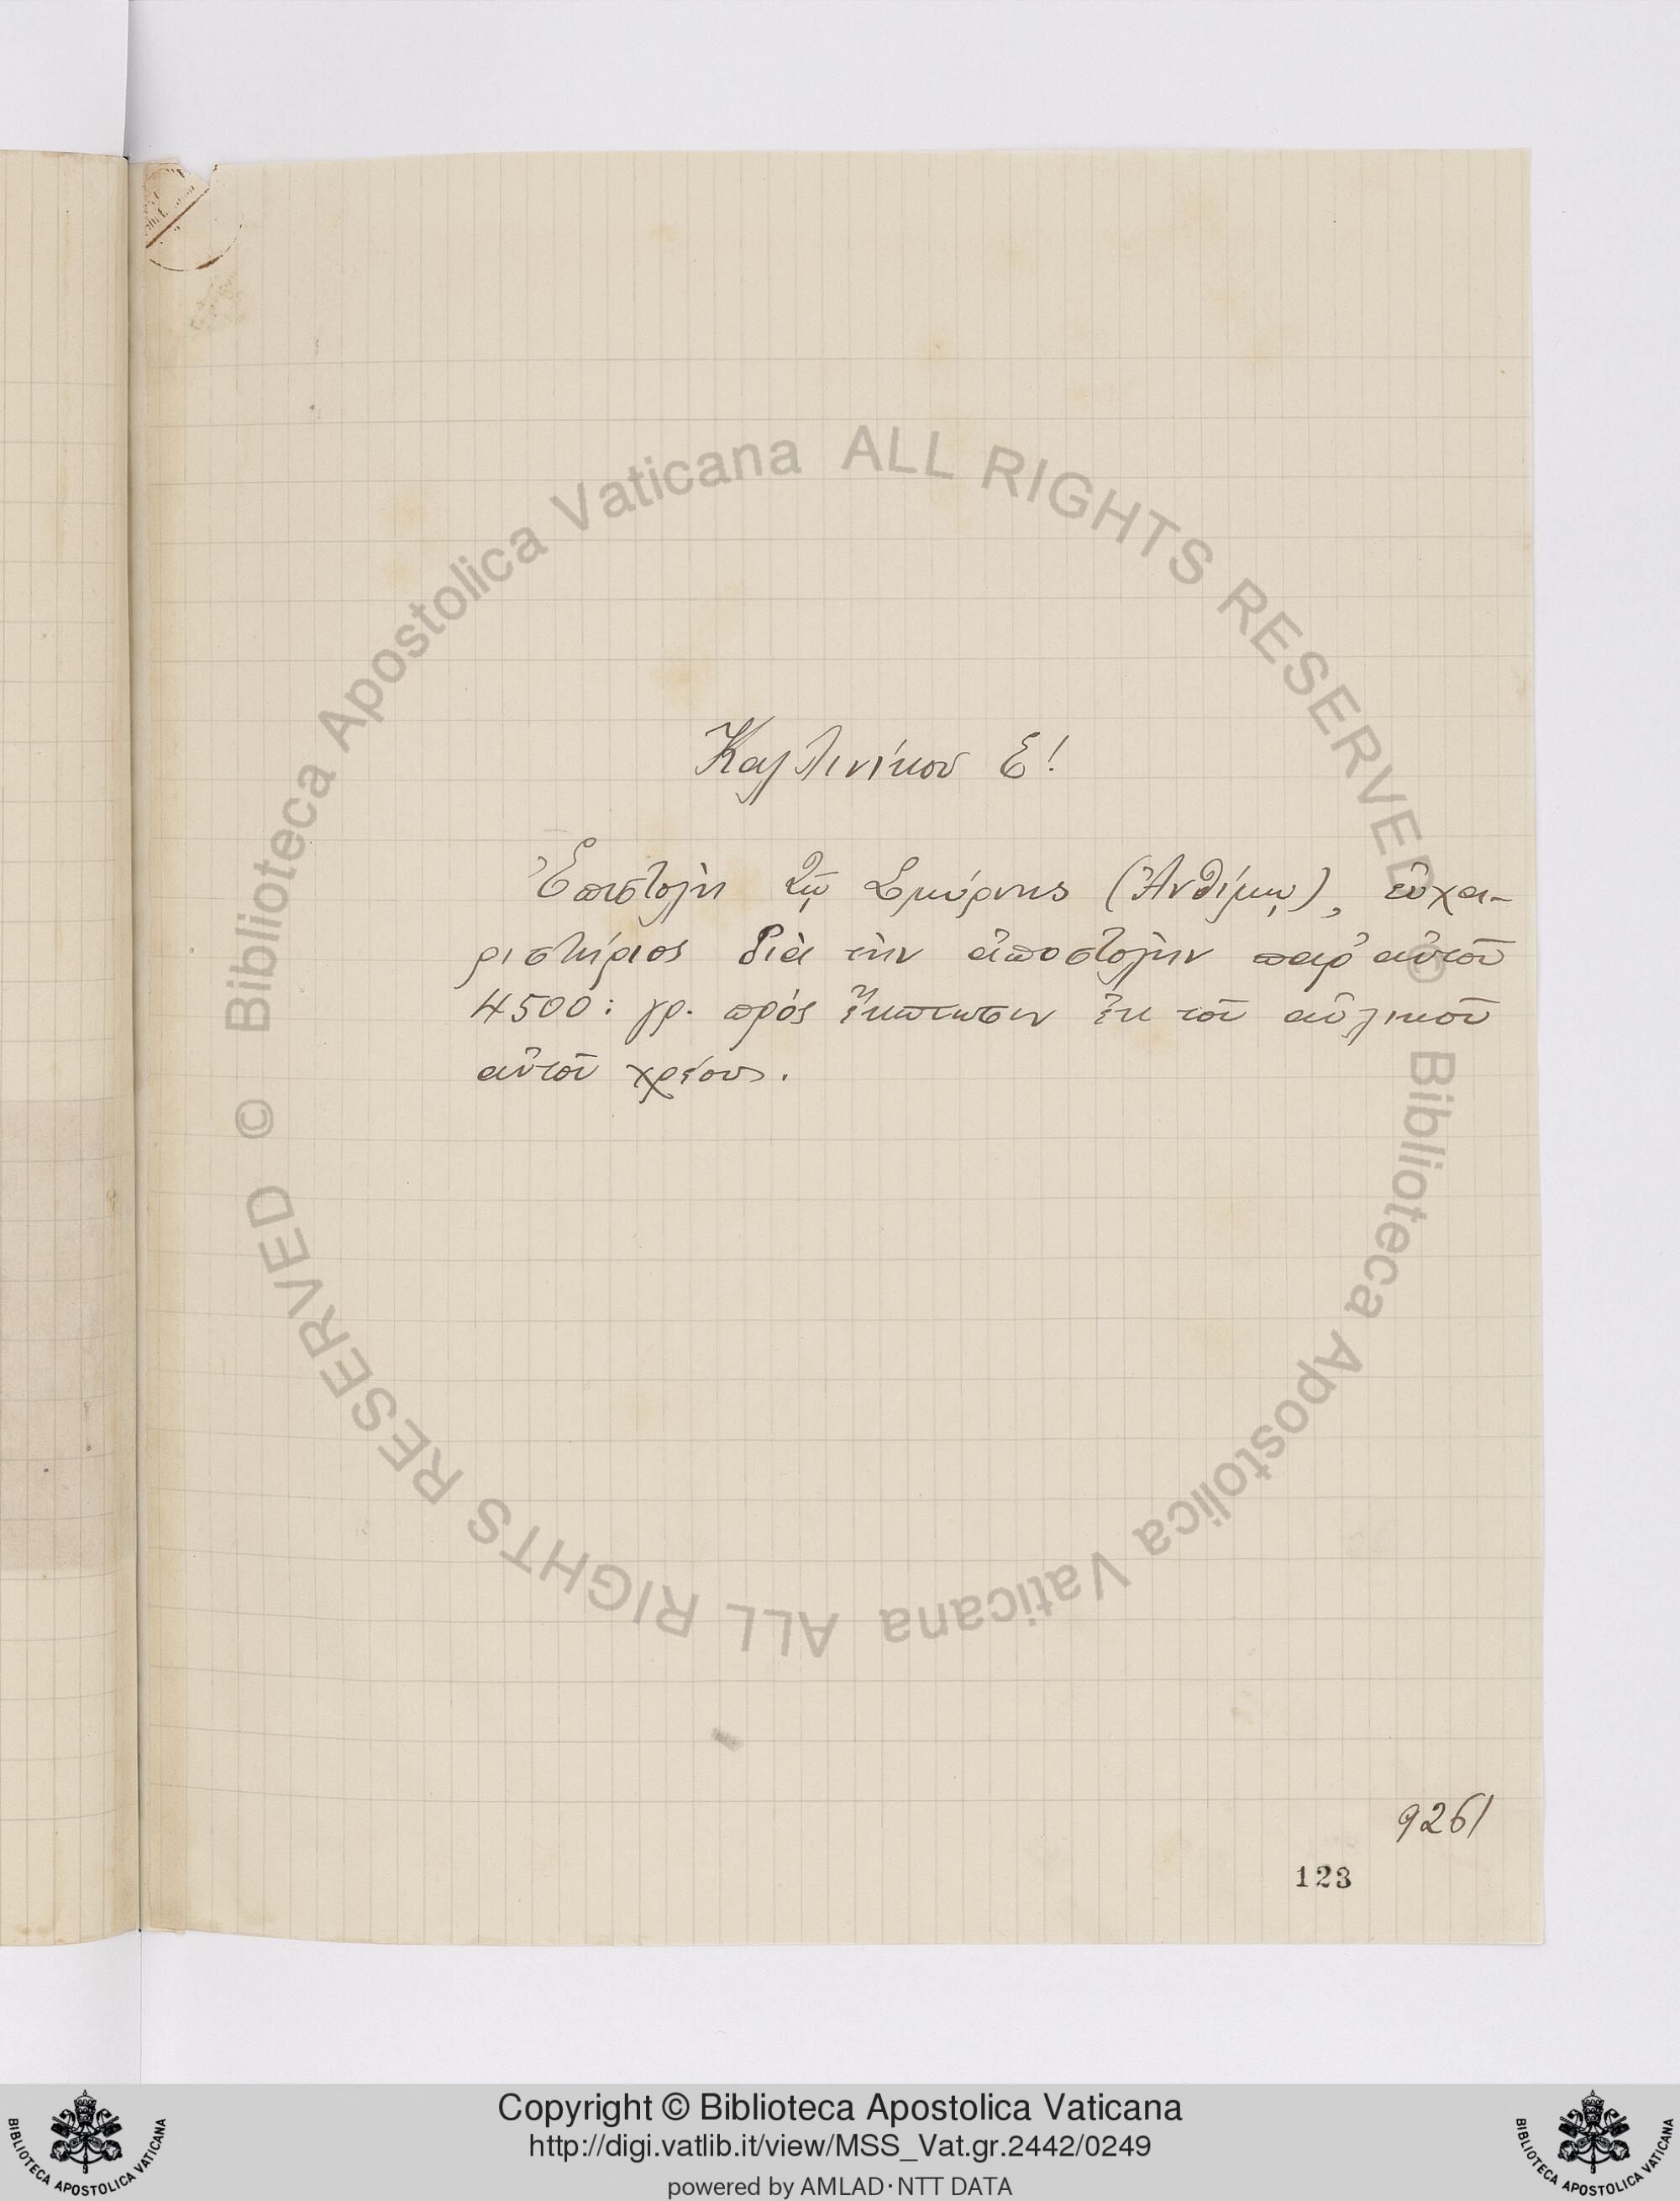 Καλλινίκου Ε!
Ἐπιστολὴ τῷ Σμύρνης (Ἀνθίμῳ), εὐχα-
ριστήριος διὰ τὴν ἀποστολὴν παρ' αὐτοῦ
4500: γρ. πρὸς ἔκπτωσιν ἐκ τοῦ αὐλικοῦ
αὐτοῦ χρέους.
9261
123
© Biblioteca Apostolica Vaticana ALL RIGHTS RESERVED
© Biblioteca Apostolica Vaticana ALL RIGHTS RESERVED
Copyright © Biblioteca Apostolica Vaticana
http://digi.vatlib.it/view/MSS_Vat.gr.2442/0249
powered by AMLAD·NTT DATA
BIBLIOTECA APOSTOLICA VATICANA
BIBLIOTECA APOSTOLICA VATICANA